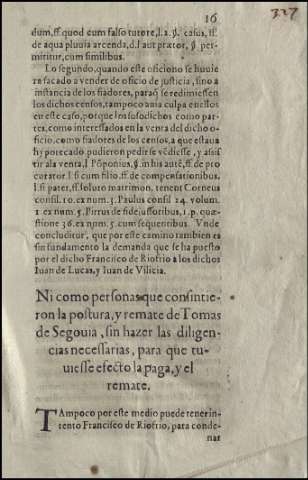 16
327
dum, ff. quod cum falso tutore, l. a. §. casus, ff.
de aqua pluuia arcenda, d. l. aut prætor, §. per-
mititur, cum similibus.
Lo segundo, quando este oficio no se huuie
re sacado a vender de oficio de justicia, sino a
instancia de los fiadores, paraq̃ se redimiessen
los dichos censos, tampoco auia culpa en ellos
en este caso, porque los susodichos como par-
tes, como interessados en la venta del dicho o-
ficio, como fiadores de los censos, a que estaua
hypotecado pudieron pedir se vẽdiesse, y assis
tir a la venta, l. Põponius, §. in his autẽ, ff. de pro
curator. l. si cum filio, ff. de compensationibus.
l. si pater, ff. soluto matrimon. tenent Corneus
consil. 10. ex num. 3. Paulus consil 24. volum.
1. ex num. 5. Pirrus de fideiussoribus, 1. p. quæ-
stione 36. ex num. 5. cum sequentibus. Vnde
concluditur, que por este camino tambien es
sin fundamento la demanda que se ha puesto
por el dicho Francisco de Riofrio a los dichos
Iuan de Lucas, y Iuan de Vilicia.
Ni como personas que consintie-
ron la postura, y remate de Tomas
de Segouia, sin hazer las diligen-
cias necessarias, para que tu-
uiesse efecto la paga, y el
remate.
TAmpoco por este medio puede tener in-
tento Francisco de Riofrio, para conde-
nar